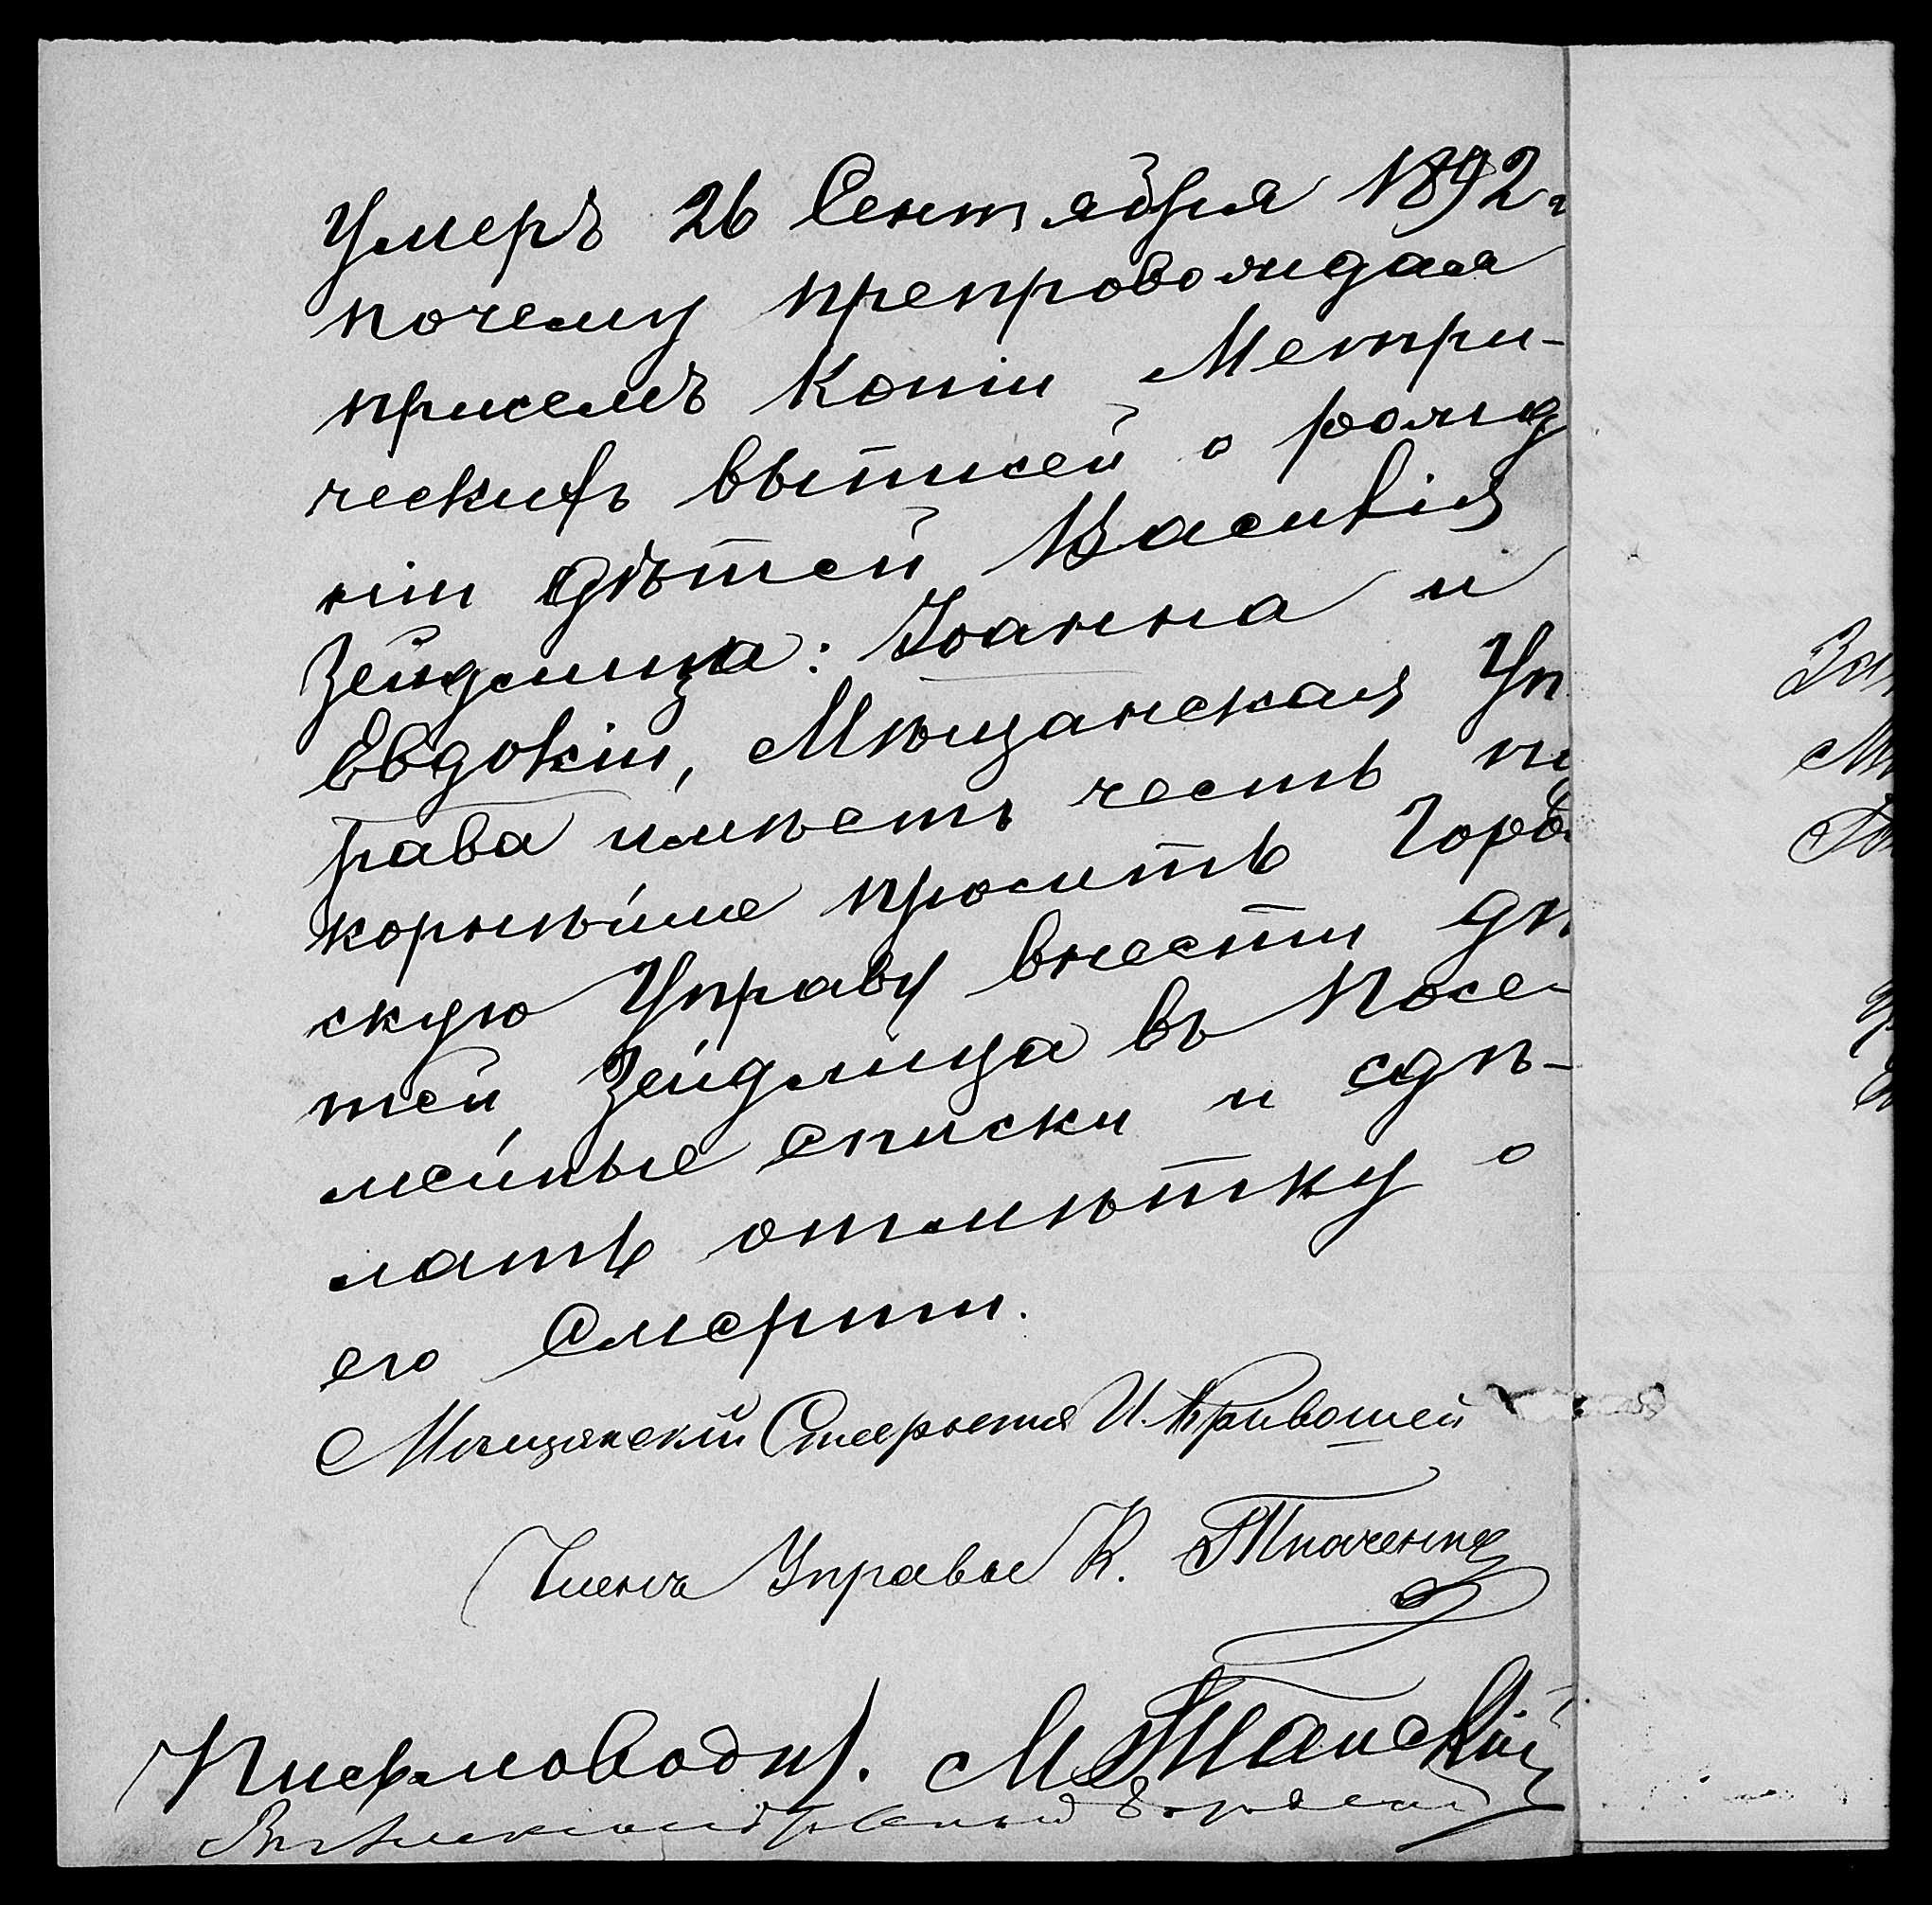 умеръ 26 Сентября 1892 г
почему препровождая
присемъ копіи Метри-
ческихъ выписей о рожд
ніи дѣтей Василія
Зейдлица: Іоанна и
Евдокіи, Мѣщанская Уп
рава имѣетъ честь по
корнѣйше просить Город
скую Управу внести дѣ
тей Зейдлица въ посе-
мейные списки и сдѣ-
лать отмѣтку о
его смерти.
Мѣщанскій Староста И. Кривошей
Членъ Управы К. Ткаченко
Письмоводит. М. Танскій